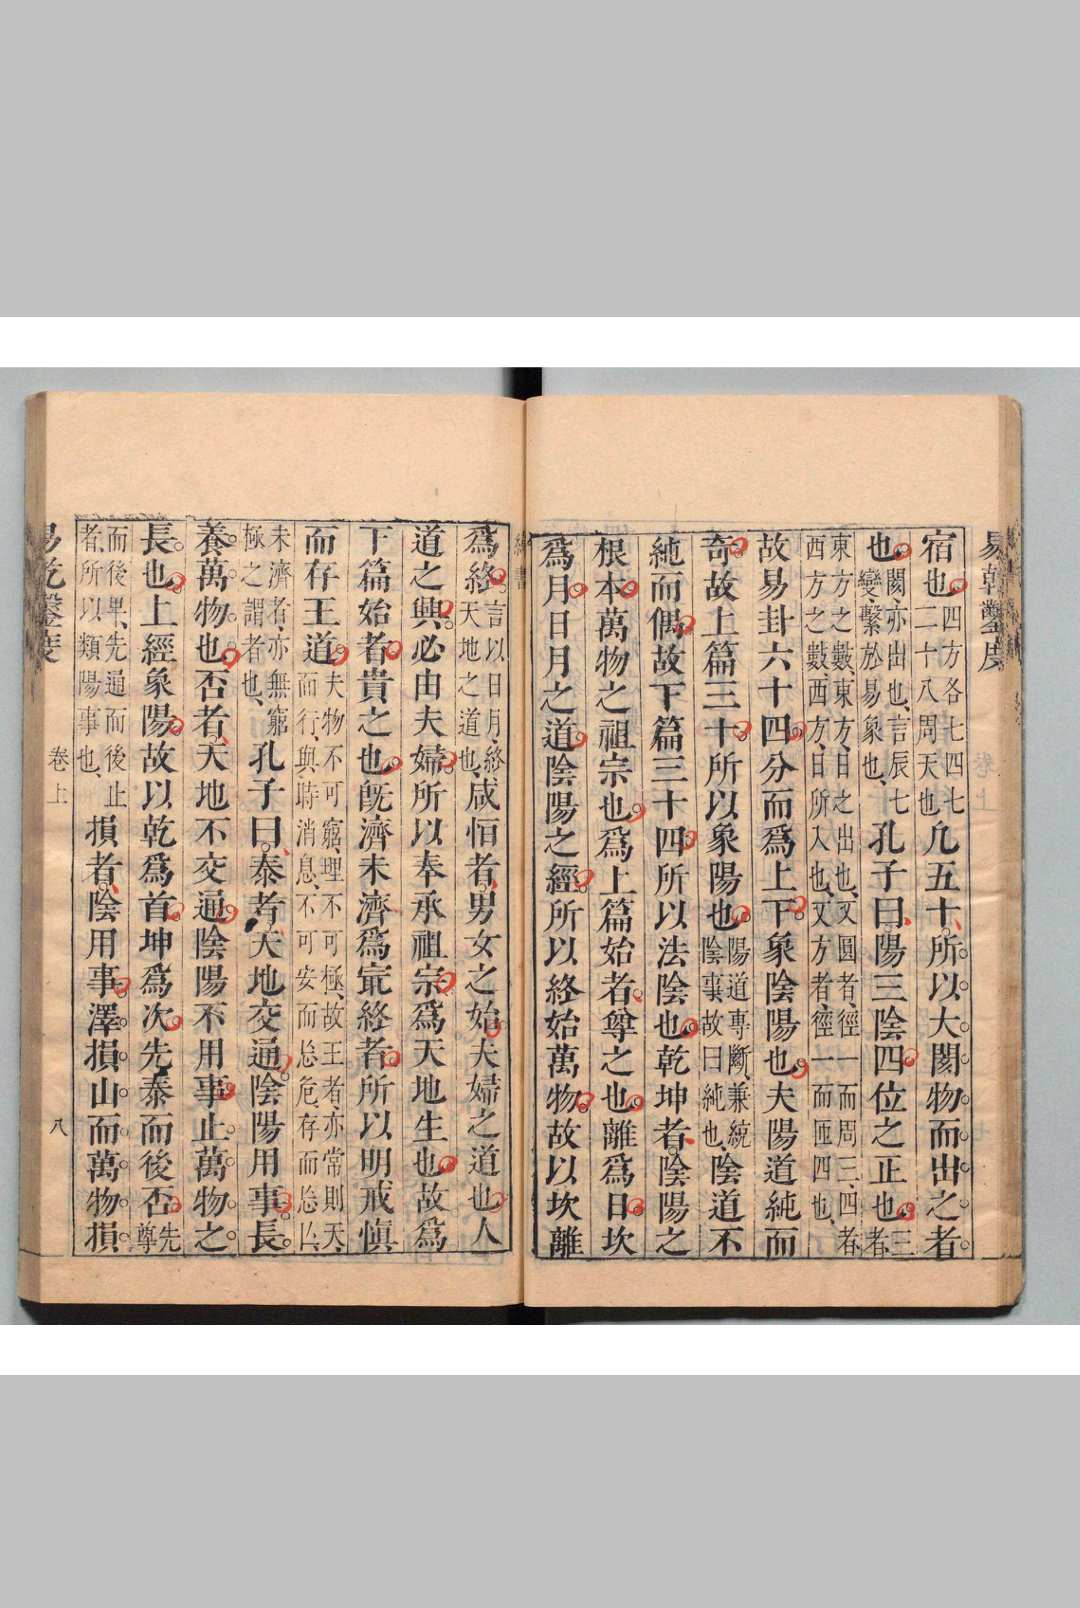 易乾鑿度
宿也四方各七四七二十八周天也凡五十所以大閡物而出之者
也閡亦出也言辰七變繫於易象也孔子曰陽三陰四位之正也三者
東方之數東方日之出也又圓者徑一而周三四者西方之數西方日所入也又方者徑一而匝四也
故易卦六十四分而爲上下象陰陽也夫陽道純而
奇故上篇三十所以象陽也陽道專斷兼統陰事故曰純也陰道不
純而偶故下篇三十四所以法陰也乾坤者陰陽之
根本萬物之祖宗也爲上篇始者尊之也離爲日坎
爲月日月之道陰陽之經所以終始萬物故以坎離
緯書
爲終言以日月終天地之道也咸恒者男女之始夫婦之道也人
道之興必由夫婦所以奉承祖宗爲天地生也故爲
下篇始者貴之也旣濟未濟爲㝡終者所以明戒愼
而存王道夫物不可窮理不可極故王者亦常則天而行與時消息不可安而忘危存而忘亡
未濟者亦無窮極之謂者也孔子曰泰者天地交通陰陽用事長
養萬物也否者天地不交通陰陽不用事止萬物之
長也上經象陽故以乾爲首坤爲次先泰而後否先尊
而後卑先通而後止者所以類陽事也損者陰用事澤損山而萬物損
易乾鑿度
卷上
八